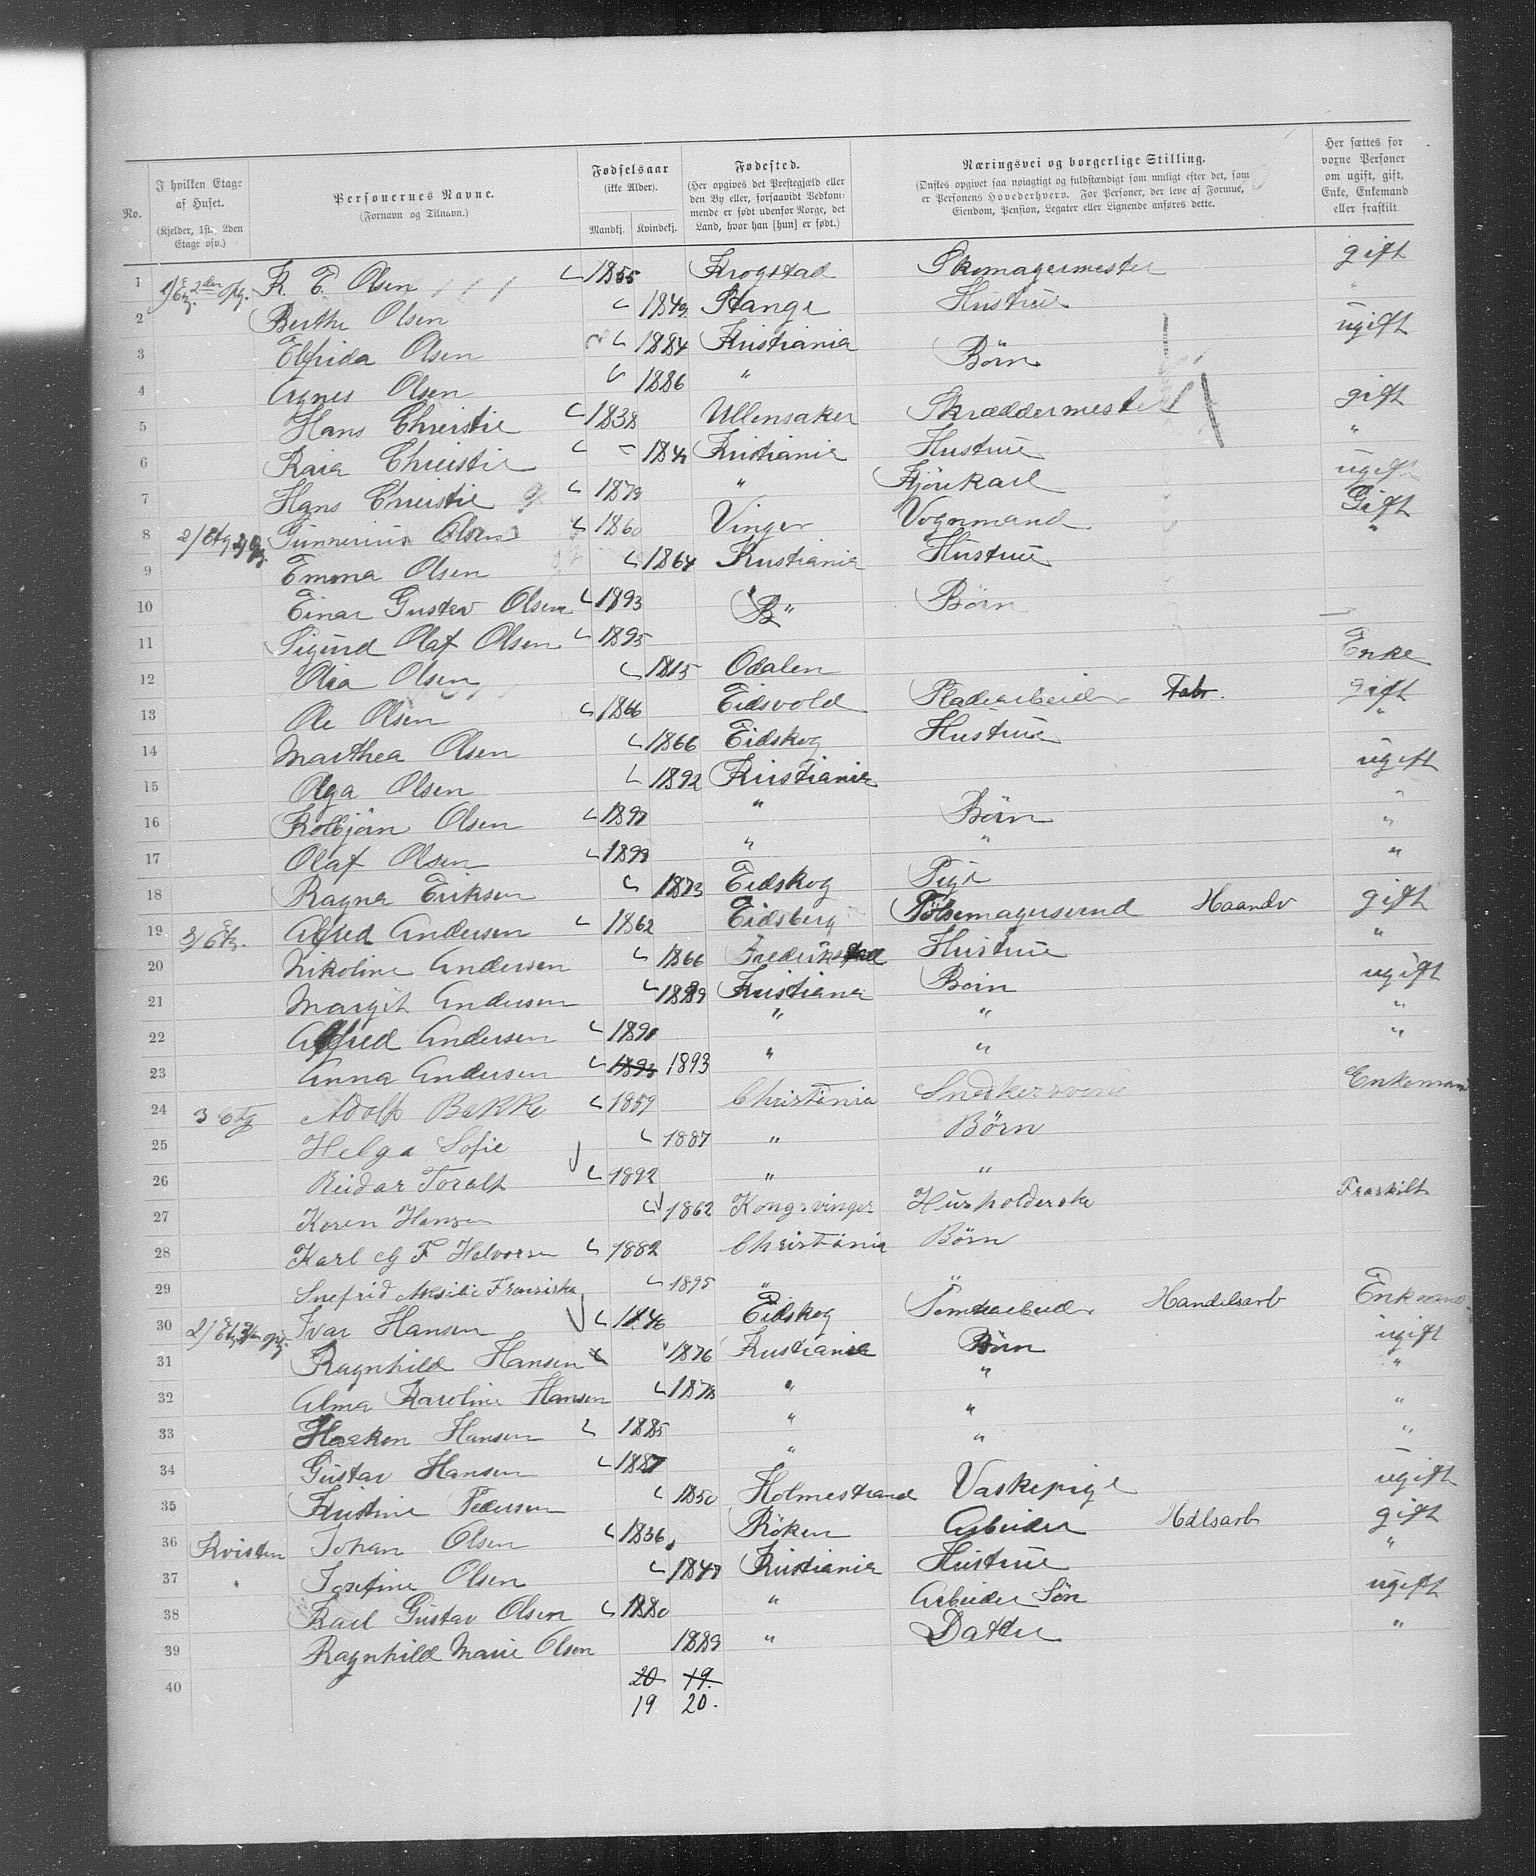 No.
I hvilken Etage af Huset.
(Kjelder, 1ste, 2den Etage osv.)
Personernes Navne.
(Fornavn og Tilnavn.)
Fødselsaar
(ikke Alder).
Mandkj. Kvindekj.
Fødested.
(Her opgives det Prestegjæld eller den By eller, forsaavidt Vedkommende er født udenfor Norge, det Land, hvor han [hun] er født.)
Næringsvei og borgerlige Stilling.
(Ønskes opgivet saa nøiagtigt og fuldstændigt som muligt efter det, som er Personens Hovederhverv. For Personer, der leve af Formue, Eiendom, Pension, Legater eller Lignende anføres dette.
Her sættes for voxne Personer om ugift, gift, Enke, Enkemand eller fraskilt
1 K E Olsen 1855 Krogstad Skomagermester gift
2 Berthe Olsen 1843 Stange Hustrue "
3 Elfrida Olsen 1884 Kristiania ugift
4 Agnes Olsen 1886 " Börn
5 Hans Christie 1838 Ullensaker Skræddermester gift
6 Christie Kristiania Hustrue "
7 Hans Christie 1879 " Kjörekarl ugift
8 2/Etg Gunnerius Olsen 1860 Vinger Vognmand Gift
9 Emma Olsen 1864 Kristiania Hustrue "
10 Einar Gustav Olsen 1893 " Börn
11 Sigurd Olaf Olsen 1895
12 Olsen 1815 Odalen Enke
13 Ole Olsen 1866 Eidsvold Pladearbeider Fabr. gift
14 Marthea Olsen 1866 Eidskog Hustrue "
15 Olga Olsen 1892 Kristiania ugift
16 Kolbjörn Olsen 1897 " Börn "
17 Olaf Olsen 1898 " " "
18 Ragna Eriksen 1873 Eidskog Pige "
19 3/Etg. Alfred Andersen 1862 Eidsberg Pölsemagersvend Haandv gift
20 Nikoline Andersen 1866 Fredrikstad Hustrue "
21 Margit Andersen 1889 Kristiania Born ugift
22 Alfred Andersen 1890 " " "
23 Anna Andersen 1893 1893 " " "
24 3 Etg Adolf Bakke 1859 Christiania Snedkersvend Enkemand
25 Helga Sofie 1887 " Börn
26 Reidar Toralf 1892 " "
27 Karen Hansen 1862 Kongsvinger Husholderske Fraskilt
28 Karl F Halvorsen 1882 Christiania Börn
29 Snefrid Aksilie Fransiska 1895 " "
30 Ivar Hansen 1846 Eidskog Tomtearbeider Handelsarb Enkemand
31 Ragnhild Hansen 1876 Kristiania Börn ugift
32 Alma Karoline Hansen 1878 " " "
33 Haakon Hansen 1885 " " "
34 Gustav Hansen 1887 " " "
35 Kristine Pedersen 1850 Holmestrand Vaskepige ugift
36 Kvisten Johan Olsen 1836 Röken Arbeider Hdlsarb gift
37 " Josefine Olsen 1848 Kristiania Hustrue "
38 Karl Gustav Olsen 1880 " Arbeider Sön ugift
39 Ragnhild Marie Olsen 1883 " Datter "
40 20 19.
19 20.